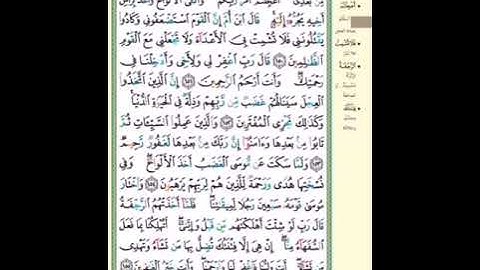 أَخِيهِ يَجُرُّهُۥٓ إِلَيْهِ ۚ قَالَ ٱبْنَ أُمَّ إِنَّ ٱلْقَوْمَ ٱسْتَضْعَفُونِى وَكَادُوا۟
يَقْتُلُونَنِى فَلَا تُشْمِتْ بِىَ ٱلْأَعْدَآءَ وَلَا تَجْعَلْنِى مَعَ ٱلْقَوْمِ
ٱلظَّـٰلِمِينَ ١٥٠ قَالَ رَبِّ ٱغْفِرْ لِى وَلِأَخِى وَأَدْخِلْنَا فِى
رَحْمَتِكَ ۖ وَأَنتَ أَرْحَمُ ٱلرَّٰحِمِينَ ١٥١ إِنَّ ٱلَّذِينَ ٱتَّخَذُوا۟
ٱلْعِجْلَ سَيَنَالُهُمْ غَضَبٌ مِّن رَّبِّهِمْ وَذِلَّةٌ فِى ٱلْحَيَوٰةِ ٱلدُّنْيَا ۚ
وَكَذَٰلِكَ نَجْزِى ٱلْمُفْتَرِينَ ١٥٢ وَٱلَّذِينَ عَمِلُوا۟ ٱلسَّيِّـَٔاتِ ثُمَّ
تَابُوا۟ مِنۢ بَعْدِهَا وَءَامَنُوٓا۟ إِنَّ رَبَّكَ مِنۢ بَعْدِهَا لَغَفُورٌ رَّحِيمٌ
١٥٣ وَلَمَّا سَكَتَ عَن مُّوسَى ٱلْغَضَبُ أَخَذَ ٱلْأَلْوَاحَ ۖ وَفِى
نُسْخَتِهَا هُدًى وَرَحْمَةٌ لِّلَّذِينَ هُمْ لِرَبِّهِمْ يَرْهَبُونَ ١٥٤ وَٱخْتَارَ
مُوسَىٰ قَوْمَهُۥ سَبْعِينَ رَجُلًا لِّمِيقَـٰتِنَا ۖ فَلَمَّآ أَخَذَتْهُمُ ٱلرَّجْفَةُ
قَالَ رَبِّ لَوْ شِئْتَ أَهْلَكْتَهُم مِّن قَبْلُ وَإِيَّـٰىَ ۖ أَتُهْلِكُنَا بِمَا فَعَلَ
ٱلسُّفَهَآءُ مِنَّآ ۖ إِنْ هِىَ إِلَّا فِتْنَتُكَ تُضِلُّ بِهَا مَن تَشَآءُ وَتَهْدِى
مَن تَشَآءُ ۖ أَنتَ وَلِيُّنَا فَٱغْفِرْ لَنَا وَٱرْحَمْنَا ۖ وَأَنتَ خَيْرُ ٱلْغَـٰفِرِينَ ١٥٥